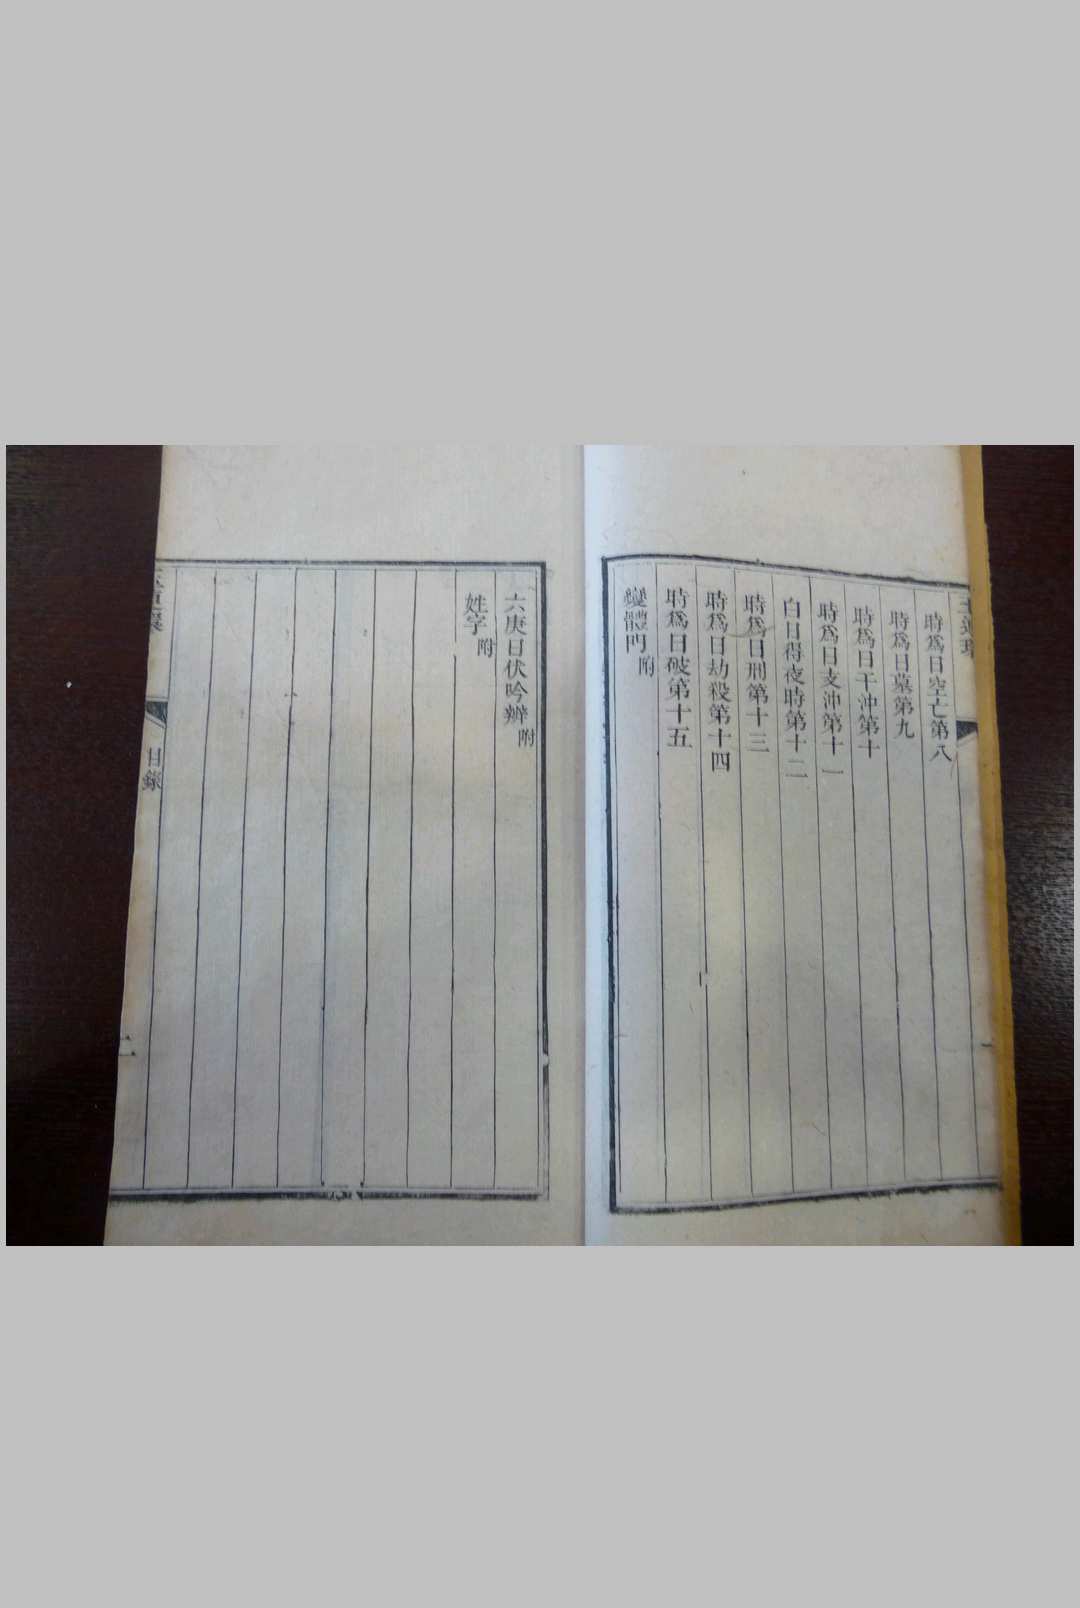 時爲日空亡第八
時爲日墓第九
時爲日干沖第十
時爲日支沖第十一
白日得夜時第十二
時爲日刑第十三
時爲日劫殺第十四
時爲日破第十五
變體門附
六庚日伏吟辯附
姓字附
目錄
二